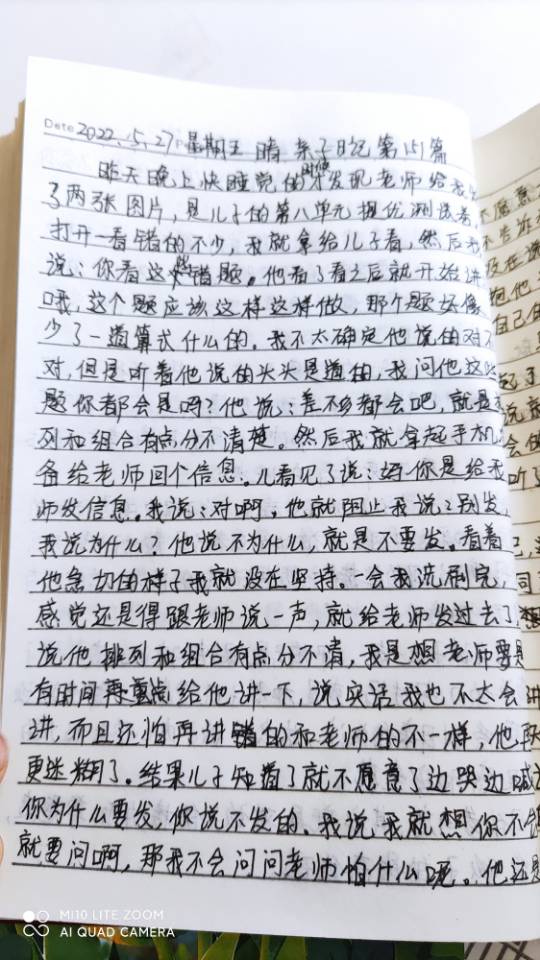 Date 2022.5.27 星期五 晴 亲子日记第151篇
昨天晚上快睡觉的时候发现老师给我
了两张图片，是儿子的第八单元提优测试卷
打开一看错的不少，我就拿给儿子看，然后
说：你看这些错题。他看了看之后就开始讲
哦，这个题应该这样这样做，那个题好像
少了一道算式什么的。我不太确定他说的对
对，但是听着他说的头头是道的，我问他这
题你都会是吗？他说：差不多都会吧，就是
列和组合有点分不清楚。然后我就拿起手机
备给老师回个信息。儿看见了说：妈你是给
师发信息。我说：对啊，他就阻止我说：别发，
我说为什么？他说不为什么，就是不要发。看着
他急切的样子我就没在坚持。一会我洗刷完，
感觉还是得跟老师说一声，就给老师发过去了，
说他排列和组合有点分不清，我是想老师要是
有时间再重点给他讲一下，说实话我也不太会讲
讲，而且还怕再讲错的和老师的不一样，他
更迷糊了。结果儿子知道了就不愿意了边哭边喊
你为什么要发，你说不发的。我说我就想你不
就要问啊，那我不会问问老师怕什么呢。他还是
不愿意
不告诉
没在
抱他
自己的
起了
说就
会的
听了
MI 10 LITE ZOOM
AI QUAD CAMERA